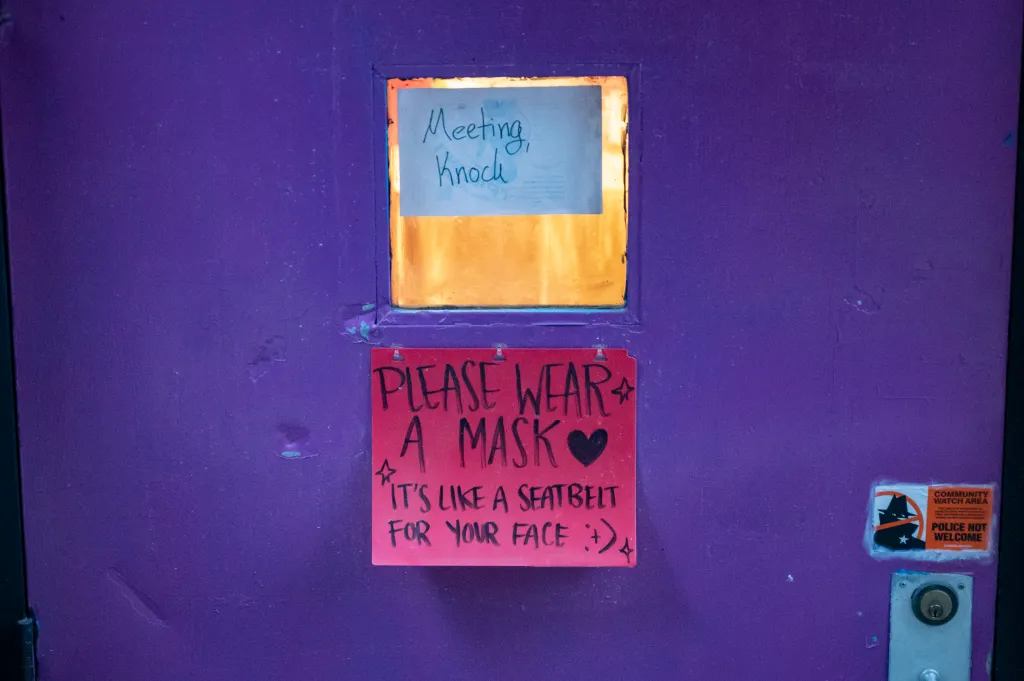 Meeting,
Knock
PLEASE WEAR
A MASK
IT'S LIKE A SEATBELT
FOR YOUR FACE :+)
COMMUNITY
WATCH AREA
POLICE NOT
WELCOME